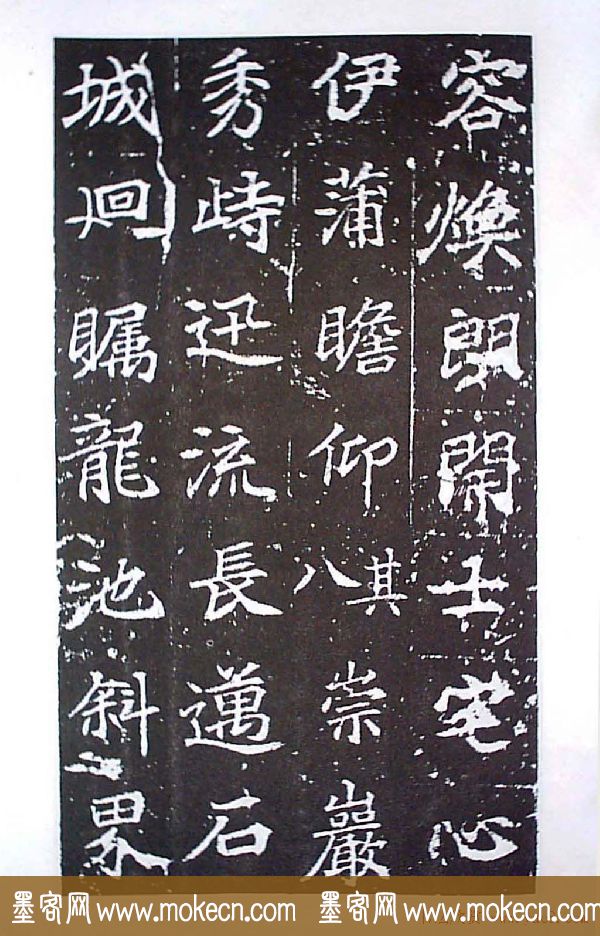 容煥朗閑士宅心
伊蒲瞻仰其八崇巖
秀峙迅流長邁石
城迴矚龍池斜界
墨客网 www.mokecn.com 墨客网 www.mokecn.com